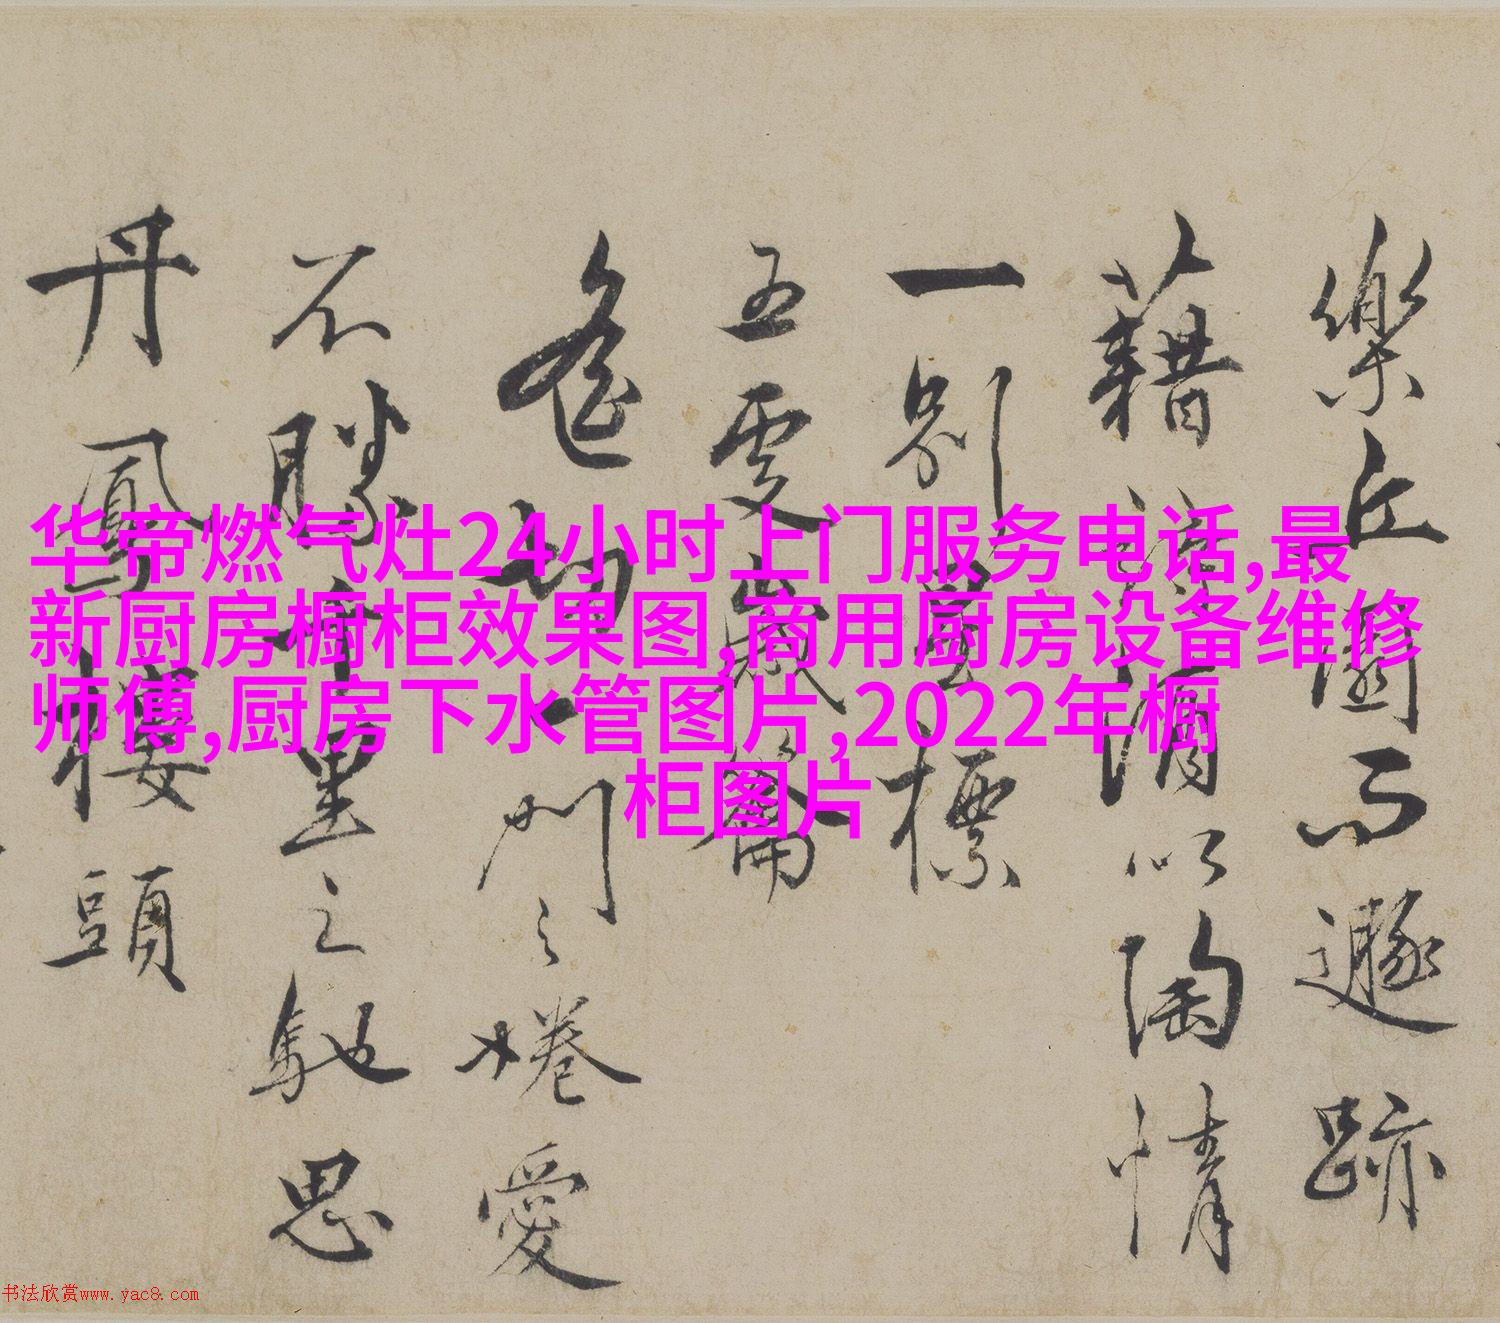 樂丘園而遯跡
藉詩酒以陶情
一別量標
五更歲籥
遙切門之惓愛
不勝千里之馳思
丹鳳樓頭
华帝燃气灶24小时上门服务电话,最
新厨房橱柜效果图,商用厨房设备维修
师傅,厨房下水管图片,2022年橱
柜图片
书法欣赏www.yac8.com